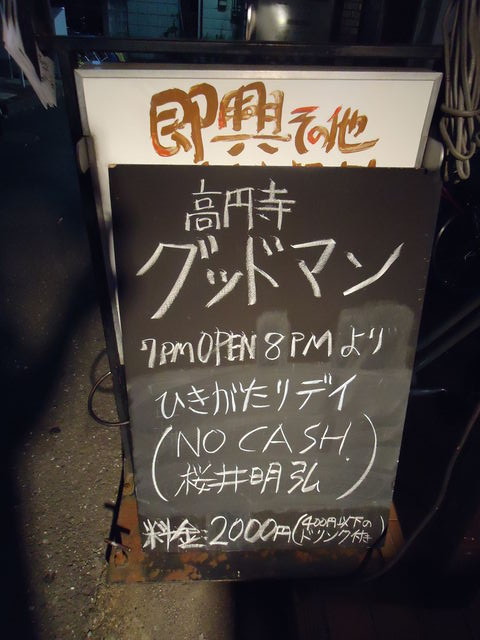 即興その他
高円寺
グッドマン
7PM OPEN 8PMより
ひきがたりデイ
(NO CASH.
桜井明弘)
料金:2000円(400円以下の
ドリンク付)